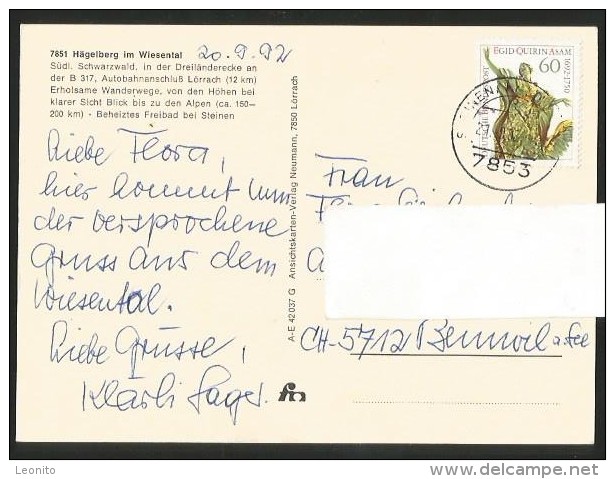 7851 Hägelberg im Wiesental
Südl. Schwarzwald, in der Dreiländerecke an
der B 317, Autobahnanschluß Lörrach (12 km)
Erholsame Wanderwege, von den Höhen bei
klarer Sicht Blick bis zu den Alpen (ca. 150–
200 km) · Beheiztes Freibad bei Steinen
20.9.92
Liebe Flora,
hier kommt nun
der versprochene
Gruss aus dem
Wiesental.
Liebe Grüsse,
Klärli Sager.
A-E 42 037 G Ansichtskarten-Verlag Neumann, 7850 Lörrach
EGID QUIRIN ASAM
1692-1750
60
7853
Frau
CH-5712 Beinwil a. See
Leonito
www.delcampe.net